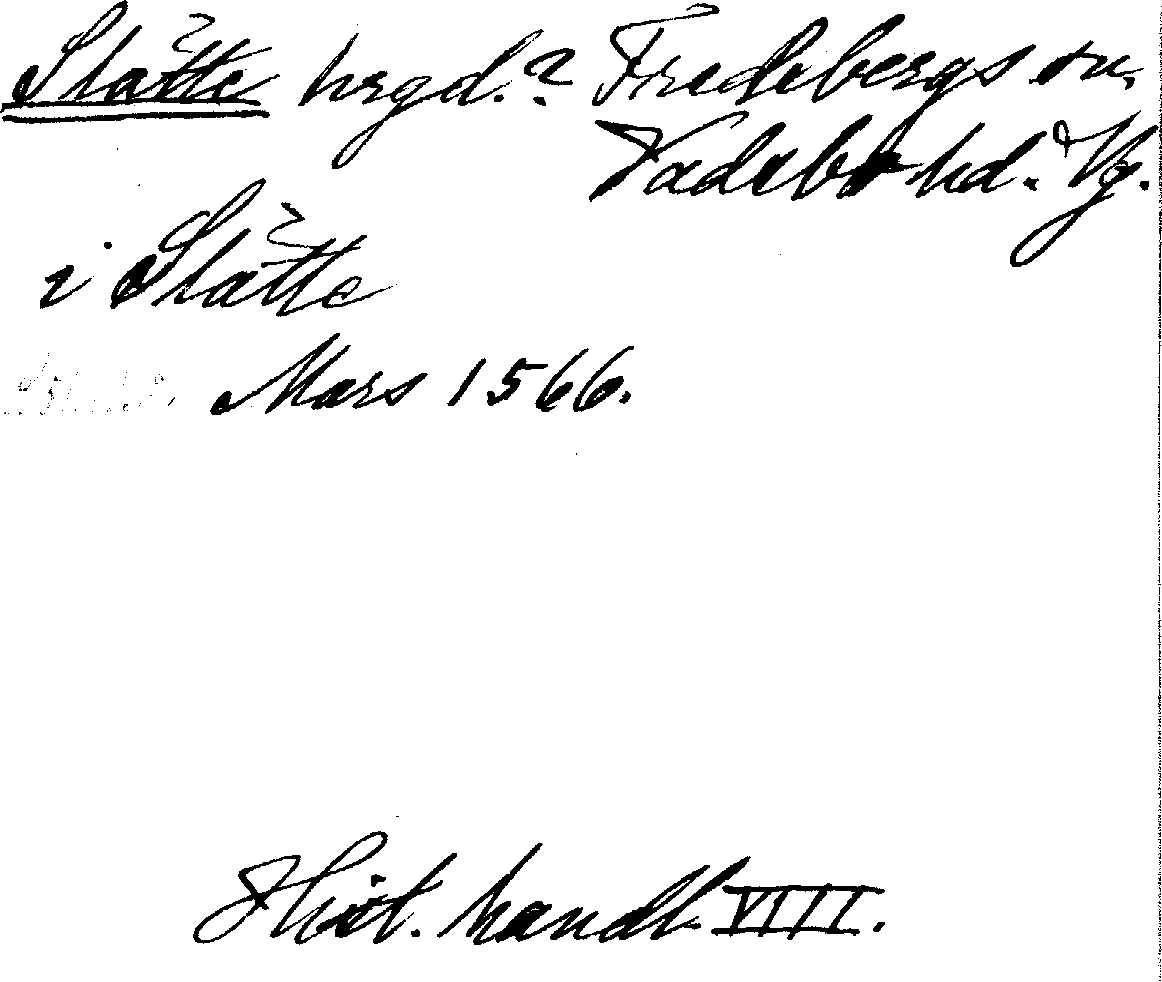 Slätte hrgd.? Fredsbergs sn.
Vadsbo hd. Vg.
i Slätte
Mars 1566.
Hist. handl VIII.